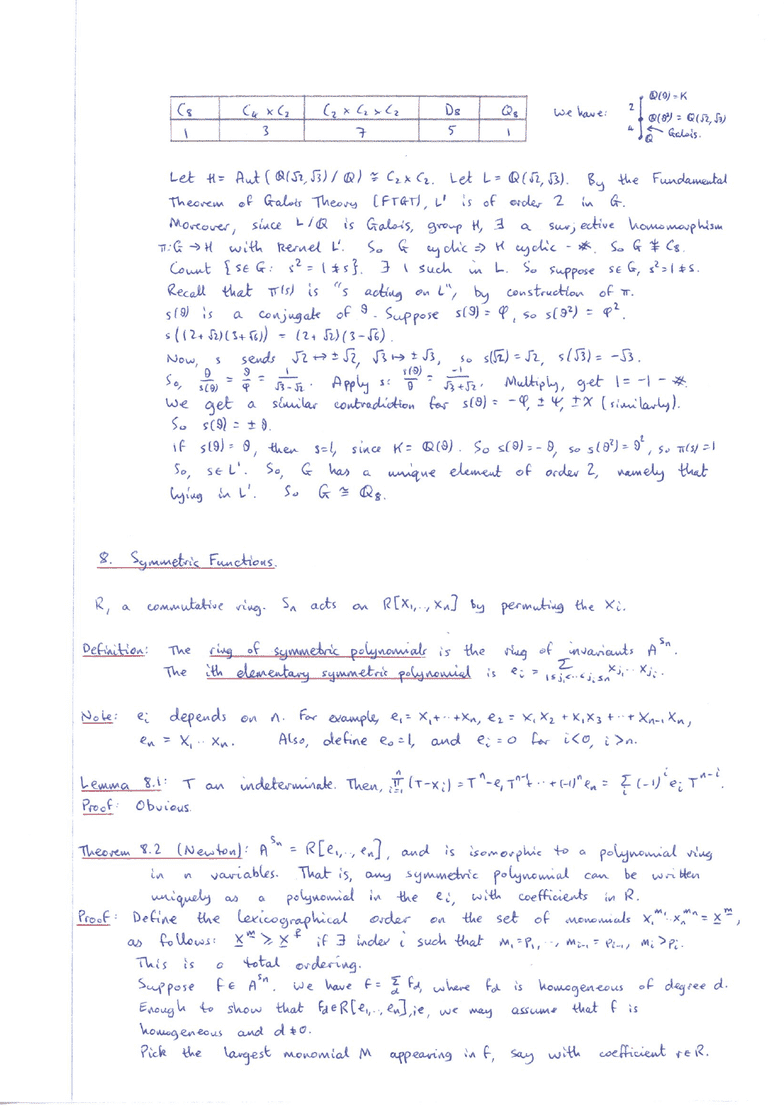 C₈ C₄ × C₂ C₂ × C₂ × C₂ D₈ Q₈
1 3 7 5 1
We have:
2 Q(ϑ) = K
4 Q(ϑ²) = Q(√2, √3)
Q Galois.
Let H = Aut(Q(√2, √3) / Q) ≅ C₂ × C₂. Let L = Q(√2, √3). By the Fundamental
Theorem of Galois Theory (FTGT), L' is of order 2 in G.
Moreover, since L/Q is Galois, group H, ∃ a surjective homomorphism
π: G → H with kernel L'. So G cyclic ⇒ H cyclic - ※. So G ≇ C₈.
Count {s ∈ G : s² = 1 ≠ s}. ∃ 1 such in L. So suppose s ∈ G, s² = 1 ≠ s.
Recall that π(s) is "s acting on L", by construction of π.
s(ϑ) is a conjugate of ϑ. Suppose s(ϑ) = φ, so s(ϑ²) = φ².
s((2+√2)(3+√6)) = (2+√2)(3-√6).
Now, s sends √2 ↦ ±√2, √3 ↦ ±√3, so s(√2) = √2, s(√3) = -√3.
So, ϑ/s(ϑ) = ϑ/φ = 1/(√3-√2). Apply s: s(ϑ)/ϑ = -1/(√3+√2). Multiply, get 1 = -1 - ※.
We get a similar contradiction for s(ϑ) = -φ, ±ψ, ±χ (similarly).
So s(ϑ) = ±ϑ.
If s(ϑ) = ϑ, then s=1, since K = Q(ϑ). So s(ϑ) = -ϑ, so s(ϑ²) = ϑ², so π(s) = 1
So, s ∈ L'. So, G has a unique element of order 2, namely that
lying in L'. So G ≅ Q₈.
8. Symmetric Functions.
R, a commutative ring. Sₙ acts on R[X₁,..,Xₙ] by permuting the Xᵢ.
Definition: The ring of symmetric polynomials is the ring of invariants A^{Sₙ}.
The ith elementary symmetric polynomial is eᵢ = Σ_{1≤j₁<..<jᵢ≤n} X_{j₁}..X_{jᵢ}.
Note: eᵢ depends on n. For example, e₁ = X₁+..+Xₙ, e₂ = X₁X₂ + X₁X₃ +..+ Xₙ₋₁Xₙ,
eₙ = X₁..Xₙ. Also, define e₀=1, and eᵢ = 0 for i<0, i>n.
Lemma 8.1: T an indeterminate. Then, ∏_{i=1}^{n} (T-Xᵢ) = Tⁿ - e₁Tⁿ⁻¹ + ..+(-1)ⁿeₙ = Σᵢ (-1)ⁱ eᵢ Tⁿ⁻ⁱ.
Proof: Obvious.
Theorem 8.2 (Newton): A^{Sₙ} = R[e₁,..,eₙ], and is isomorphic to a polynomial ring
in n variables. That is, any symmetric polynomial can be written
uniquely as a polynomial in the eᵢ, with coefficients in R.
Proof: Define the lexicographical order on the set of monomials X₁^{m₁}..Xₙ^{mₙ} = X^m,
as follows: X^m ≥ X^p if ∃ index i such that m₁=p₁, .., mᵢ₋₁ = pᵢ₋₁, mᵢ > pᵢ.
This is a total ordering.
Suppose f ∈ A^{Sₙ}. We have f = Σ_d f_d, where f_d is homogeneous of degree d.
Enough to show that f_d ∈ R[e₁,..,eₙ], ie, we may assume that f is
homogeneous and d ≠ 0.
Pick the largest monomial M appearing in f, say with coefficient r ∈ R.